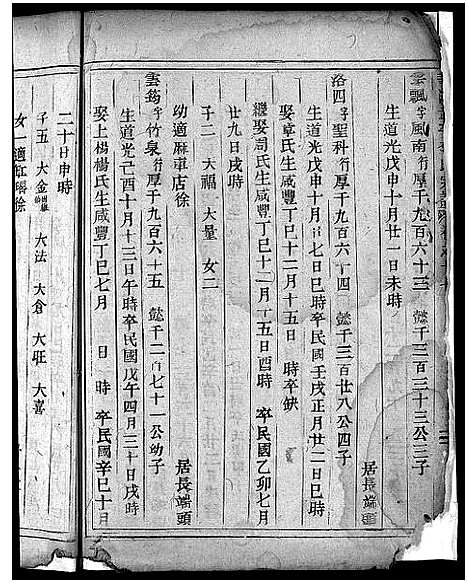 雲飄字風南行厚千九百六十三 懿千三百三十三公三子
生道光戊申十月廿一日未時
居長端頭
洛四字聖科行厚千九百六十四 懿千三百廿八公四子
生道光戊申十月初七日巳時卒民國壬戌正月廿二日巳時
娶章氏生咸豐丁巳十二月十五日 時卒缺
繼娶周氏生咸豐丁巳十二月十五日酉時 卒民國乙卯七月
廿九日戌時
子二 大福 大量 女二
幼適麻車店徐
居長端頭
雲筠字竹泉行厚千九百六十五 懿千二百七十一公幼子
生道光 亥十月十三日午時卒民國戊午四月二十日戌時
娶上楊楊氏生咸豐丁巳七月 日 時 卒民國辛巳十月
二十日申時
子五 大金 大法 大倉 大旺 大喜
女一適 徐